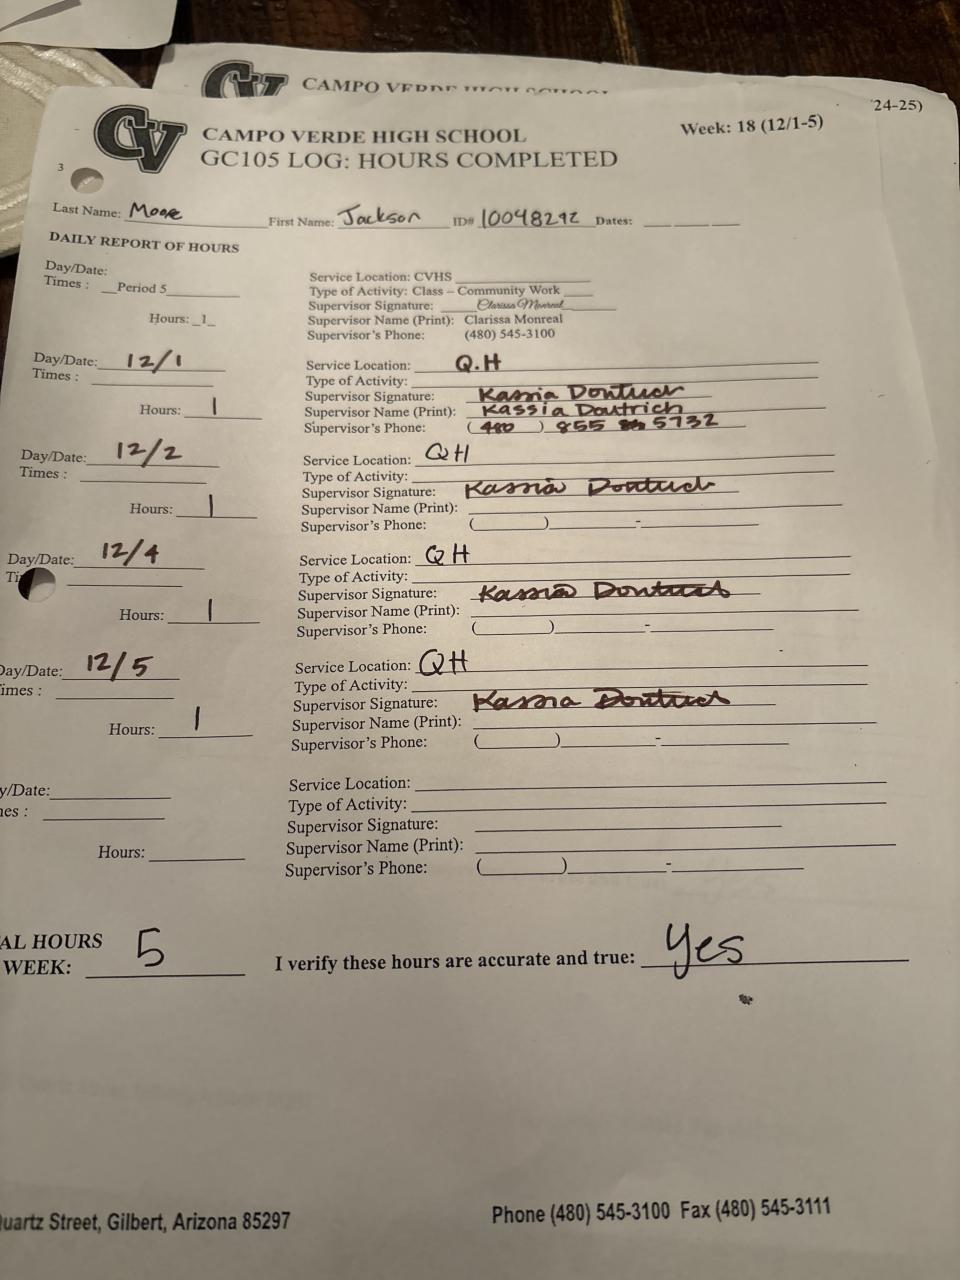 CV CAMPO VERDE HIGH SCHOOL
24-25)
CV CAMPO VERDE HIGH SCHOOL Week: 18 (12/1-5)
GC105 LOG: HOURS COMPLETED
3
Last Name: Moore First Name: Jackson ID# 10048292 Dates: ___ ___ ___
DAILY REPORT OF HOURS
Day/Date:
Times : Period 5
Hours: 1
Service Location: CVHS
Type of Activity: Class – Community Work
Supervisor Signature: Clarissa Monreal
Supervisor Name (Print): Clarissa Monreal
Supervisor's Phone: (480) 545-3100
Day/Date: 12/1
Times :
Hours: 1
Service Location: Q.H
Type of Activity:
Supervisor Signature: Kassia Doutrich
Supervisor Name (Print): Kassia Doutrich
Supervisor's Phone: (480) 855 5732
Day/Date: 12/2
Times :
Hours: 1
Service Location: QH
Type of Activity:
Supervisor Signature: Kassia Doutrich
Supervisor Name (Print):
Supervisor's Phone: ( ) -
Day/Date: 12/4
Ti
Hours: 1
Service Location: QH
Type of Activity:
Supervisor Signature: Kassia Doutrich
Supervisor Name (Print):
Supervisor's Phone: ( ) -
Day/Date: 12/5
imes :
Hours: 1
Service Location: QH
Type of Activity:
Supervisor Signature: Kassia Doutrich
Supervisor Name (Print):
Supervisor's Phone: ( ) -
y/Date:
nes :
Hours:
Service Location:
Type of Activity:
Supervisor Signature:
Supervisor Name (Print):
Supervisor's Phone: ( ) -
AL HOURS
WEEK: 5
I verify these hours are accurate and true: Yes
uartz Street, Gilbert, Arizona 85297
Phone (480) 545-3100 Fax (480) 545-3111